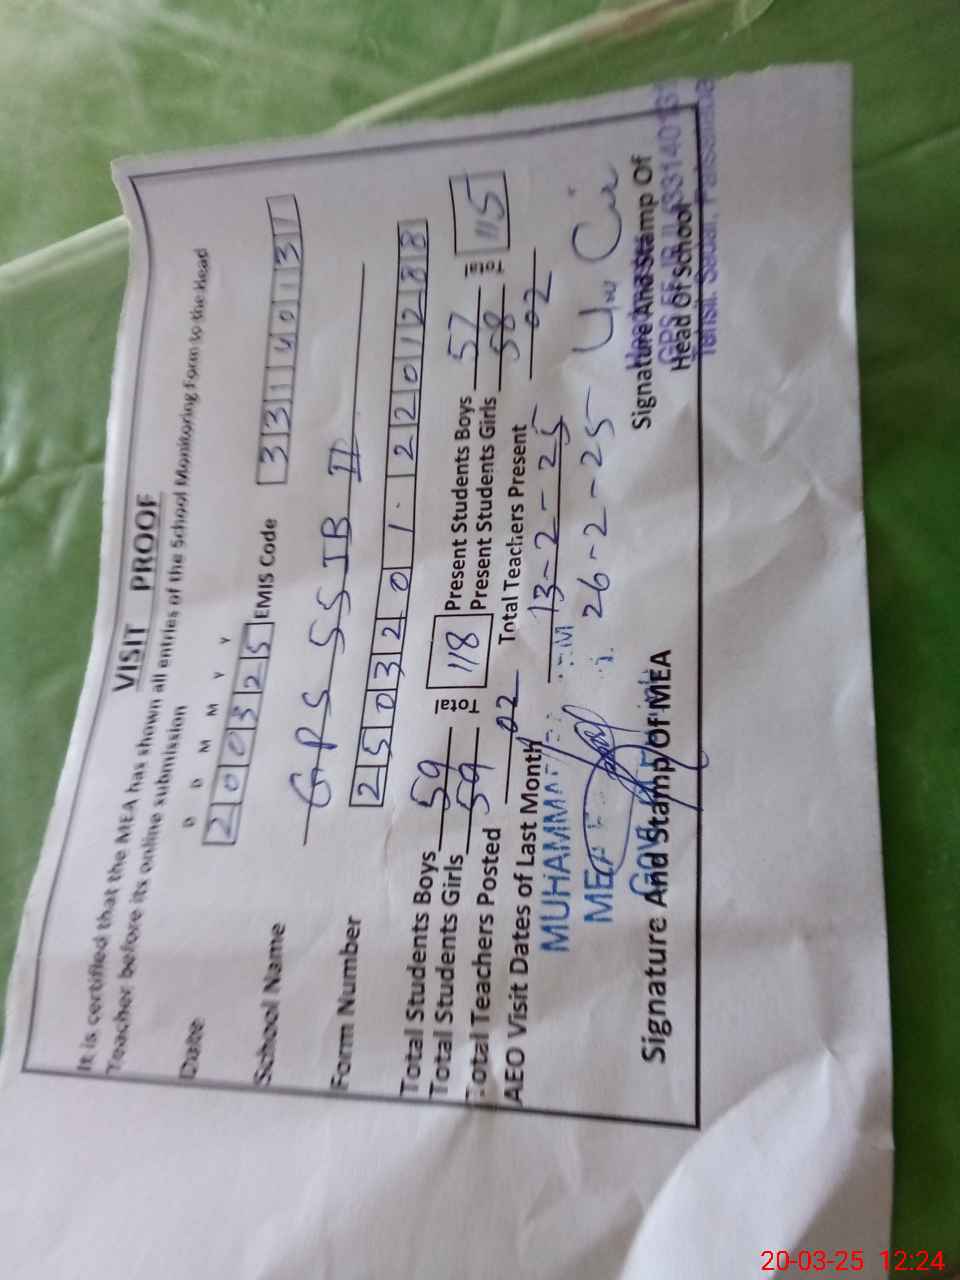 VISIT PROOF
It is certified that the MEA has shown all entries of the School Monitoring Form to the Head
Teacher before its online submission
D D M M Y Y
Date 200325 EMIS Code 33140131
School Name GPS 55 JB II
Form Number 250320 01. 2201288
Total Students Boys 59 Total 118 Present Students Boys 57 115
Total Students Girls 59 Present Students Girls 58
Total Teachers Posted 02 Total Teachers Present 02
AEO Visit Dates of Last Month 13-2-25
MUHAMMAD
MEA 26-2-25
Signature And Stamp Of MEA
Signature And Stamp Of
Head Of School
GPS 55 JB II 33140131
Tehsil. Sadar. Faisalabad
20-03-25 12:24